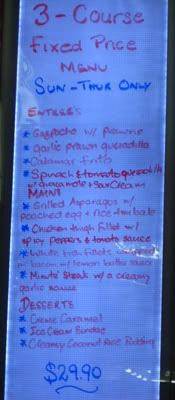 3 - Course
Fixed Price
Menu
Sun - Thur Only
Entree's
* Gazpacho w/ prawns
* garlic prawn quesadilla
* Calamar Frito
* Spinach & tomato quesadilla
w/ guacamole + Sour Cream
Mains
* Grilled Asparagus w/
poached egg + rice
* Chicken thigh Fillet w/
spicy peppers & tomato sauce
* White fish fillets wrapped
in bacon w/ lemon butter sauce
* Minute Steak w/ a creamy
garlic sauce
Desserts
* Creme Caramel
* Ice Cream Sundae
* Creamy Coconut Rice Pudding
$29.90